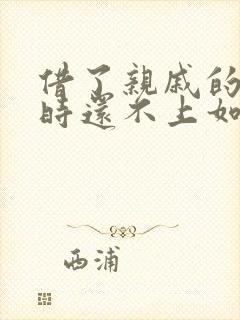 借了親戚的
時還不上如
西浦